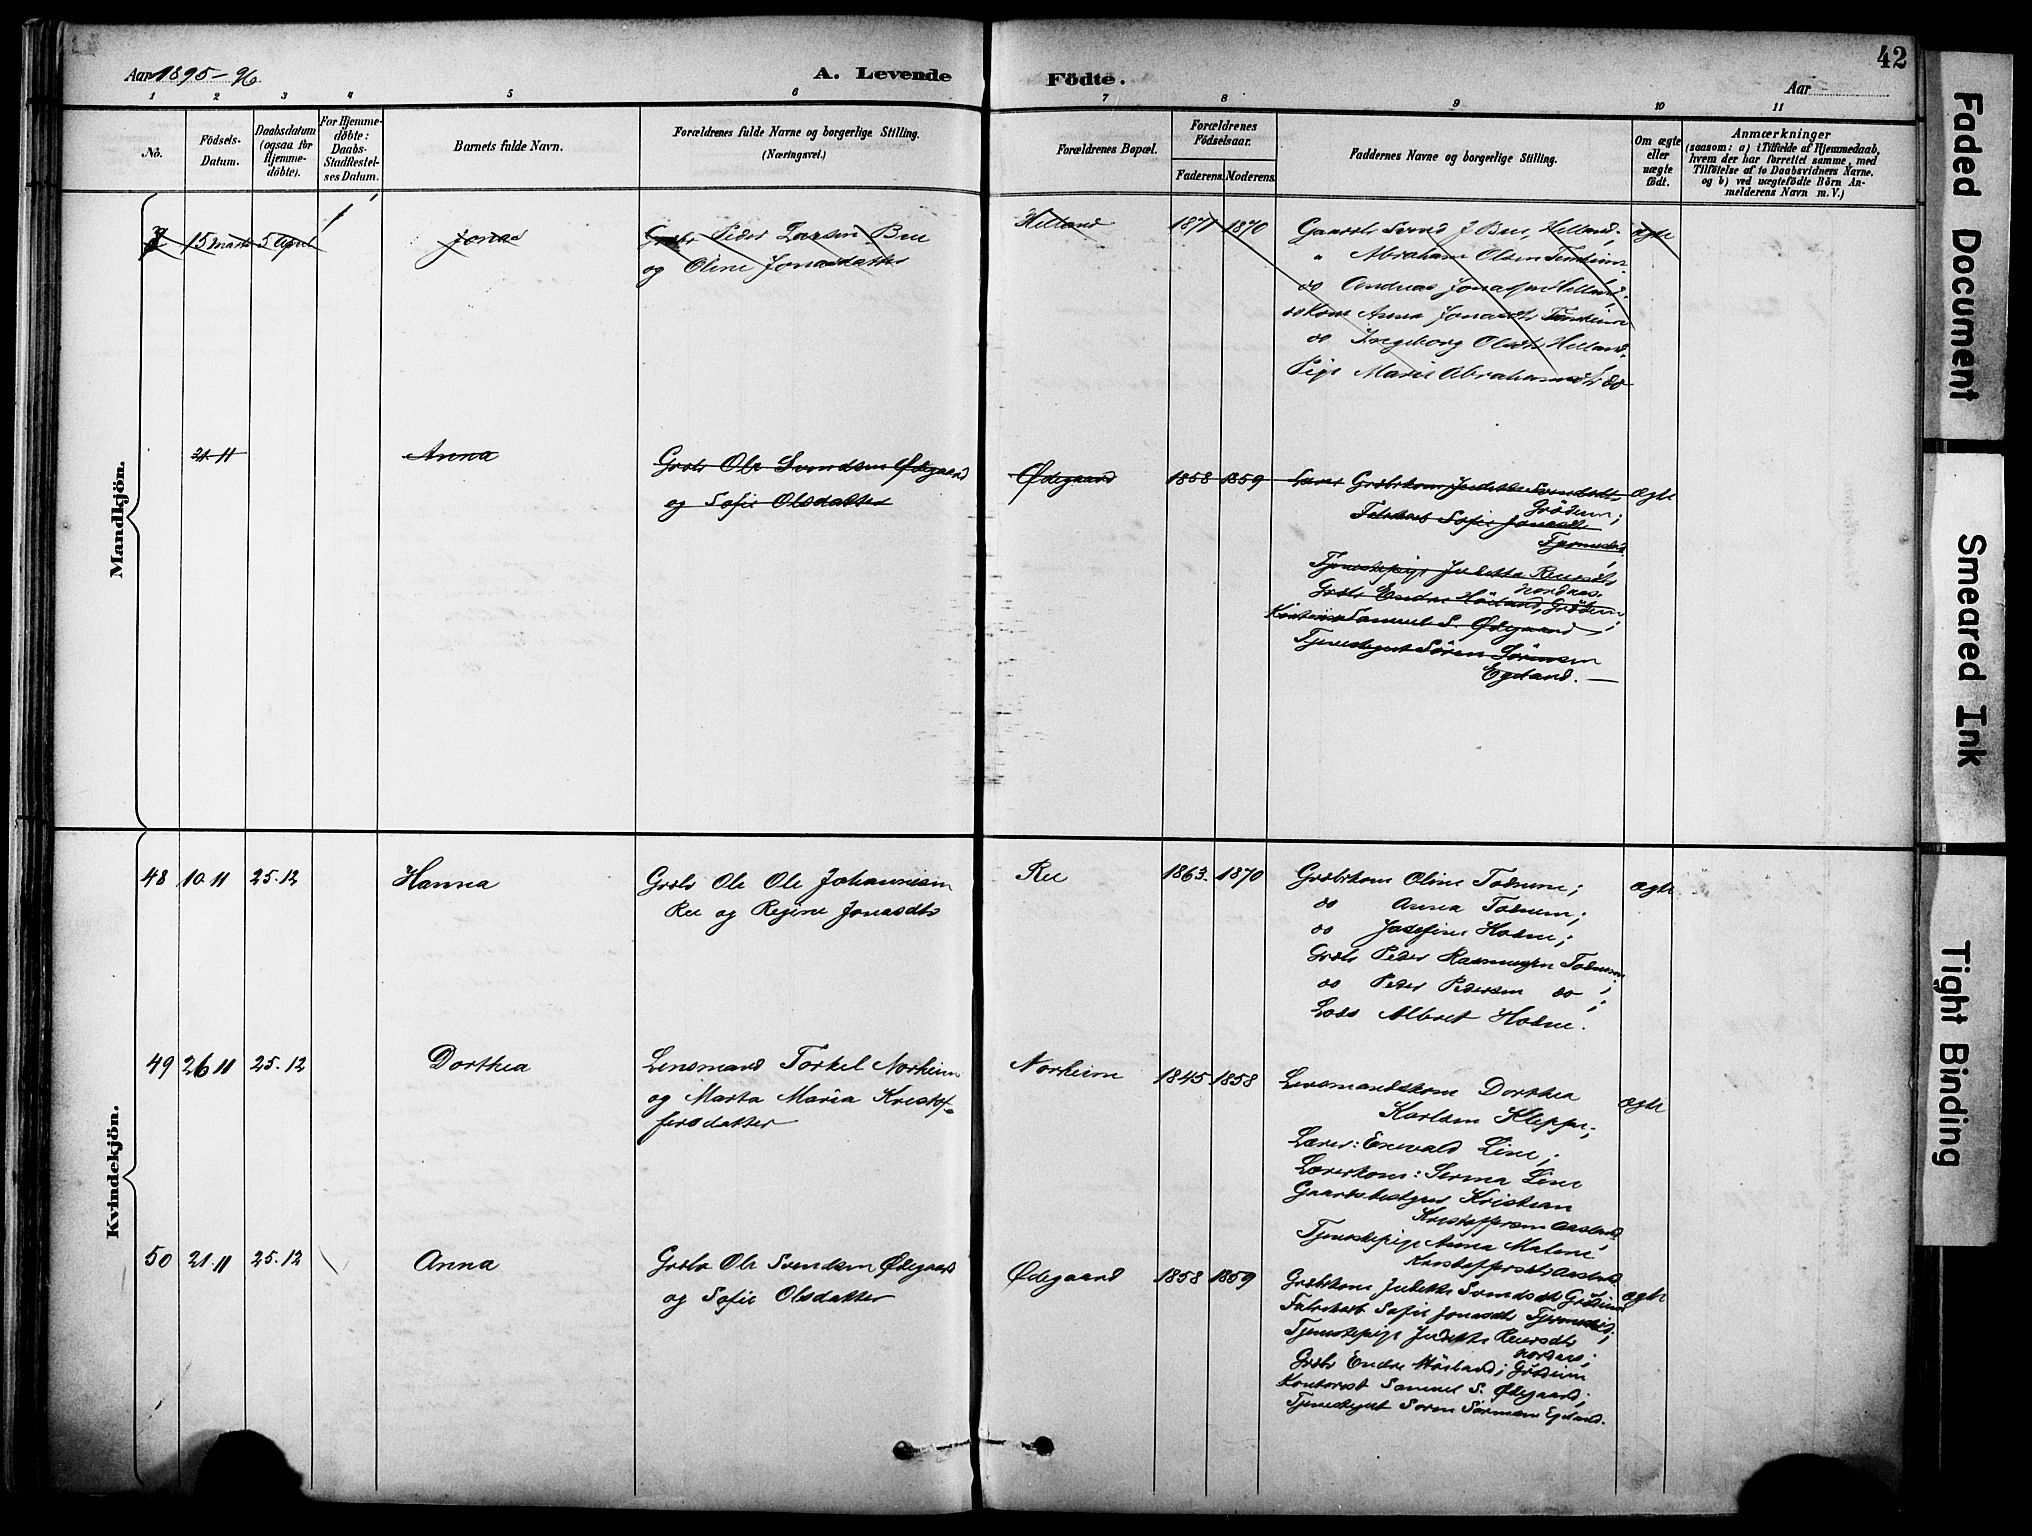 Aar 1895-96.
A. Levende
Födte.
42
Aar
1 2 3 4 5 6 7 8 9 10 11
No.
Födsels-Datum.
Daabsdatum (ogsaa for Hjemmedöbte).
For Hjemmedöbte: Daabs-Stadfæstelses Datum.
Barnets fulde Navn.
Forældrenes fulde Navne og borgerlige Stilling. (Næringsvei.)
Forældrenes Bopæl.
Forældrenes Födselsaar.
Faderens. Moderens.
Faddernes Navne og borgerlige Stilling.
Om ægte eller uægte födt.
Anmærkninger
(saasom: a) i Tilfælde af Hjemmedaab, hvem der har forrettet samme, med Tilföielse af to Daabsvidners Navne. og b) ved uægtefödte Börn Anmelderens Navn m. V.)
Mandkjön.
15 marts 5 April
Jonas
Grbr Peder Larsen Bue
og Oline Jonasdatter
Helland
1871 1870
Gaardbr Svend J Bue, Helland;
" Abraham Olsen
do Andreas Jonassen Helland.
do Kone Anna Jonasdtr
do Ingeborg Olsdtr Helland.
Pige Marie Abrahamsdtr do
ægte
21 11
Anna
Grbr Ole Svendsen Ødegaard
og Sofie Olsdatter
Ødegaard
1858 1859
Grbrkone Judithe Svendsdtr
Grödem;
Sofie Jonasdtr
Tjenestepige Judithe Reiersdtr
Nordnes.
Grbr Endre Höiland, Grödem;
Samuel S. Ødegaard
Tjenestegut Sören Sörensen
Egeland.
ægte
Kvindekjön.
48 10.11 25.12
Hanna
Grbr Ole Ole Johannesen
Ree og Regine Jonasdtr
Ree
1863. 1870
Grbrkone Oline Todnem;
do Anna Todnem;
do Josefine Hodne;
Grbr Peder Rasmussen Todnem;
do Peder Pedersen do;
Lods Albret Hodne.
ægte
49 26 11 25.12
Dorthea
Lensmand Torkel Norheim
og Marta Maria Kristof-
fersdatter
Norheim
1845 1858
Lensmandskone Dorthea
Karlsen Kleppe;
Lærer: Enevald Line;
Lærerkone: Serina Line
Gaardsbestyrer Kristian
Kristoffersen Aasland
Tjenestepige Anna Malene
Kristoffersdtr Aasland.
ægte
50 21.11 25.12
Anna
Grbr Ole Svendsen Ødegaard
og Sofie Olsdatter
Ødegaard
1858 1859
Grbrkone Judithe Svendsdtr Grödem
Sofie Jonasdtr
Tjenestepige Judithe Reiersdtr
Nordnes;
Grbr Endre Höiland; Grödem
Kontorist Samuel S. Ødegaard;
Tjenestegut Soren Sörensen Egeland.
ægte
Faded Document
Smeared Ink
Tight Binding